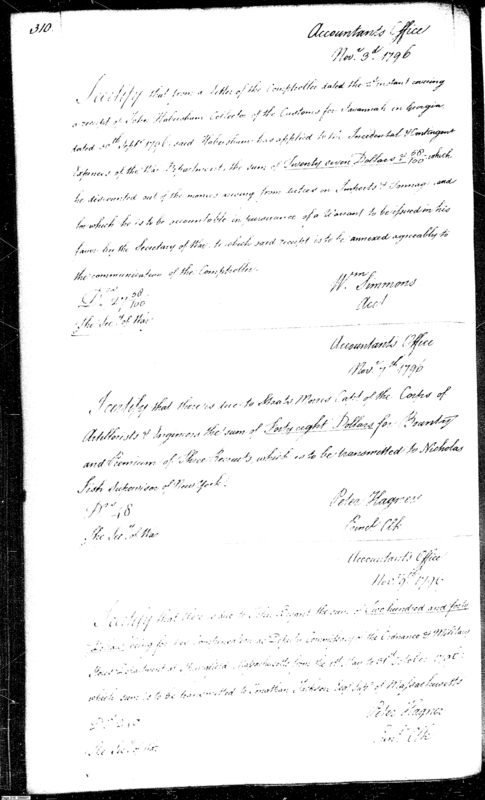 310.
Accountants Office
Novr. 3d. 1796
I certify that from a letter of the Comptroller dated the 2d instant covering
a receipt of John Habersham Collector of the Customs for Savannah in Georgia
dated 30th Septr. 1796, said Habersham has applied to the Incidental & Contingent
Expences of the War Department, the sum of Twenty seven Dollars & 58/100 which
be discounted out of the monies arising from duties on Imports & Tonnage and
for which he is to be accountable in pursuance of a Warrant to be issued in his
favor by the Secretary of War to which said receipt is to be annexed agreeably to
the communication of the Comptroller.
Wm Simmons
Acct
Drs 27 58/100
The Secy. of War
Accountants Office
Novr. 7th 1796
I certify that there is due to Staats Morris Capt. of the Corps of
Artillerists & Engineers the sum of Forty eight Dollars for Bounty
and Premium of Three Recruits, which is to be transmitted to Nicholas
Fish Supervisor of New York.
Peter Hagner
Clk
Drs 48
The Secy. of War
Accountants Office
Novr. 9th 1796
I certify that there is due to John Bryant the sum of Two hundred and forty
Dollars, being for his Compensation as Deputy Commissary of the Ordnance & Military
Stores Department at Springfield Massachusetts from the 1st to 31st October 1796
which sum is to be transmitted to Jonathan Jackson Esqr. of Massachusetts
Peter Hagner
Clk
The Secy. of War